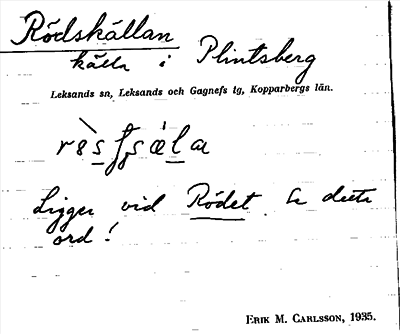 Rödskällan
källa i Plintsberg
Leksands sn, Leksands och Gagnefs tg, Kopparbergs län.
Ligger vid Rödet. Se detta
ord!
ERIK M. CARLSSON, 1935.